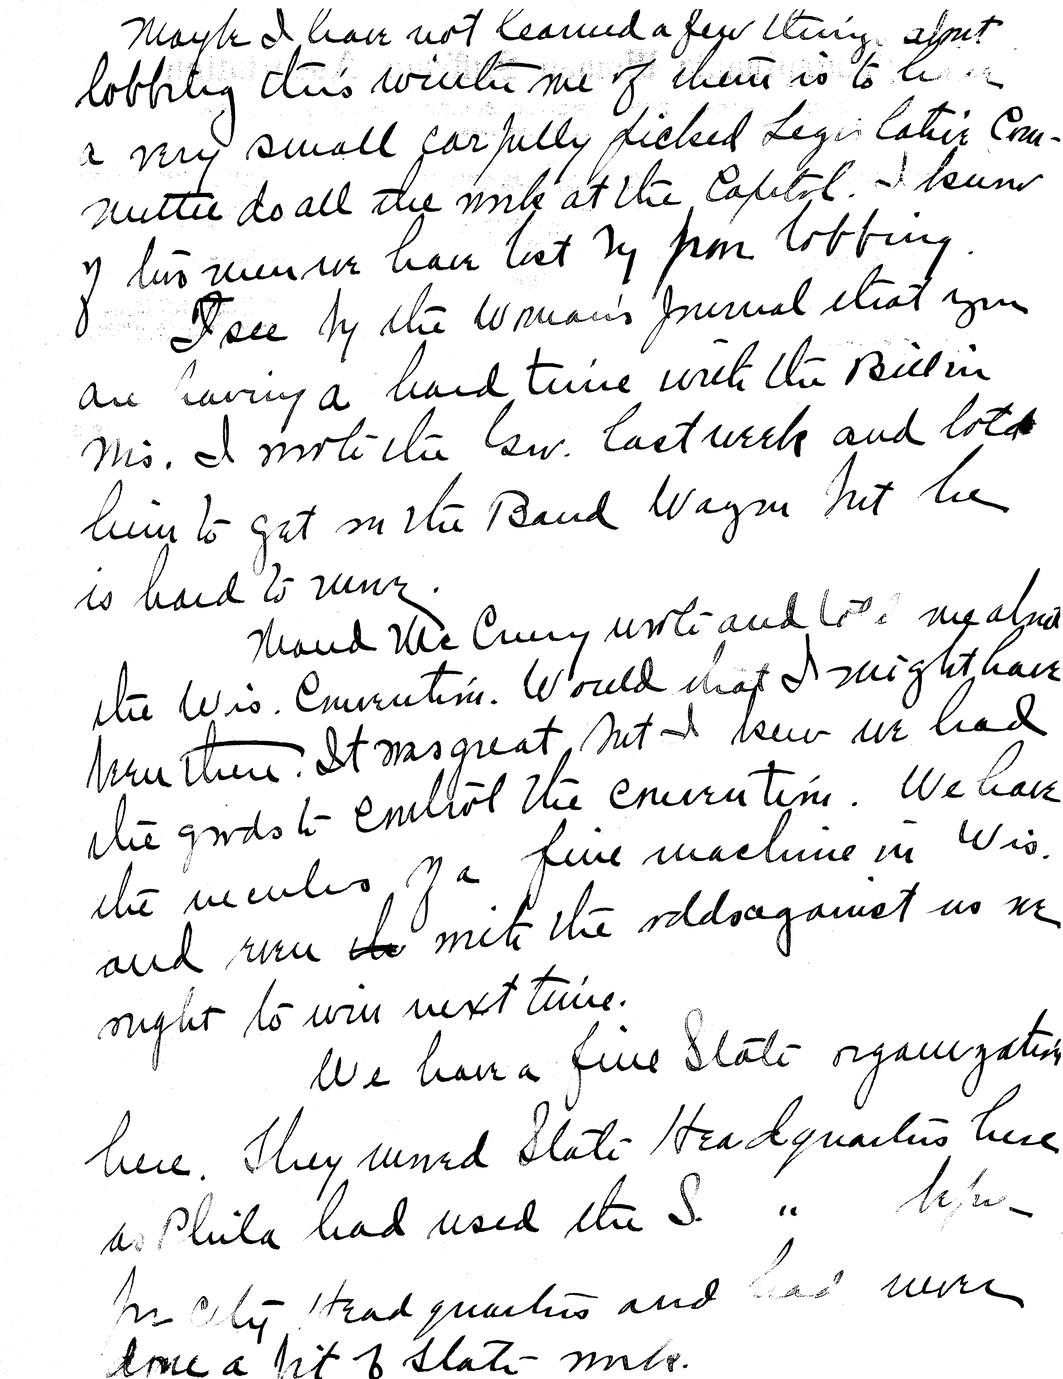 Maybe I have not learned a few things about
lobbing this winter one of them is to have
a very small carfully picked Legislative Com-
mittee do all the work at the Capitol. I know
of two men we have lost by poor lobbing.
I see by the Woman's Journal that you
are having a hard time with the Bill in
Wis. I wrote the Gov. last week and told
him to get on the Band Wagon but he
is hard to move.
Maud McCreery wrote and told me about
the Wis. Convention. Would that I might have
been there. It was great, but I knew we had
the goods to control the convention. We have
the neculus of a fine machine in Wis.
and even with the odds against us we
ought to win next time.
We have a fine State organization
here. They moved State Headquarters here
as Phila had used the S. " before
for City Headquarters and had never
done a bit of State work.